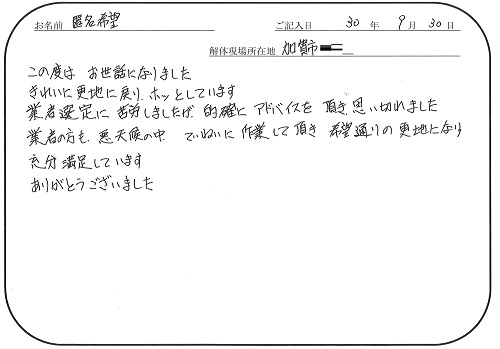 お名前 匿名希望 ご記入日 30 年 9 月 30 日
解体現場所在地 加賀市
この度は お世話になりました
きれいに更地に戻り、ホッとしています
業者選定に苦労しましたが、的確に アドバイスを 頂き、思い切れました
業者の方も、悪天候の中 ていねいに 作業して頂き 希望通りの 更地になり
充分満足しています
ありがとうございました